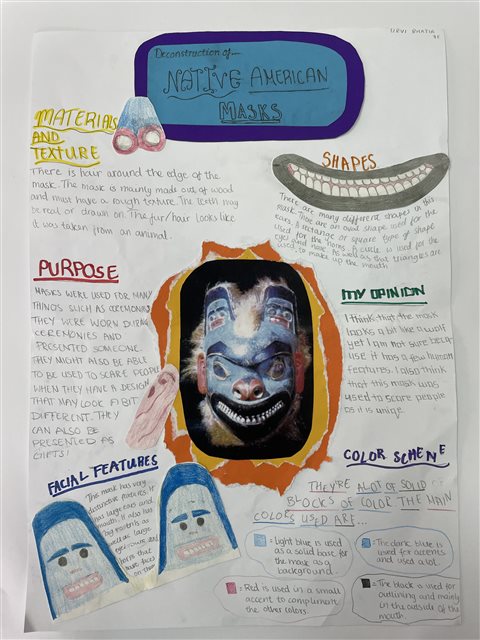 Deconstruction of...
NATIVE AMERICAN
MASKS
MATERIALS
AND
TEXTURE
There is hair around the edge of the
mask. The mask is mainly made out of wood
and must have a rough texture. The teeth may
be real or drawn on. The fur/hair looks like
it was taken from an animal.
SHAPES
There are many different shapes in this
mask. There are an oval shape used for the
ears. A rectangle or square type of shape
used for the horns. A circle is used for the
eyes and nose. As well as that triangles are
used to make up the mouth
PURPOSE
MASKS WERE USED FOR MANY
THINGS SUCH AS CEREMONIES
THEY WERE WORN DURING
CEREMONIES AND
PRESENTED SOMEONE.
THEY MIGHT ALSO BE ABLE
TO BE USED TO SCARE PEOPLE
WHEN THEY HAVE A DESIGN
THAT MAY LOOK A BIT
DIFFERENT. THEY
CAN ALSO BE
PRESENTED AS
GIFTS!
MY OPINION
I think that the mask
looks a bit like a wolf
yet I am not sure
use it has a few human
features. I also think
that this mask was
used to scare people
as it is unique.
FACIAL FEATURES
The mask has very
distinctive features. It
has large ears and
mouth. It also has
big nostrils as
well as large
eyebrows and
horns that
have faces
on them
COLOR SCHEME
THEY'RE ALOT OF SOLID
BLOCKS OF COLOR THE MAIN
COLORS USED ARE...
= Light blue is used
as a solid base for
the mask as a
background.
= The dark blue is
used for accents
and used alot.
= Red is used in a small
accent to complimente
the other colors.
= The black is used for
outlining and mainly
in the outside of the
mouth.